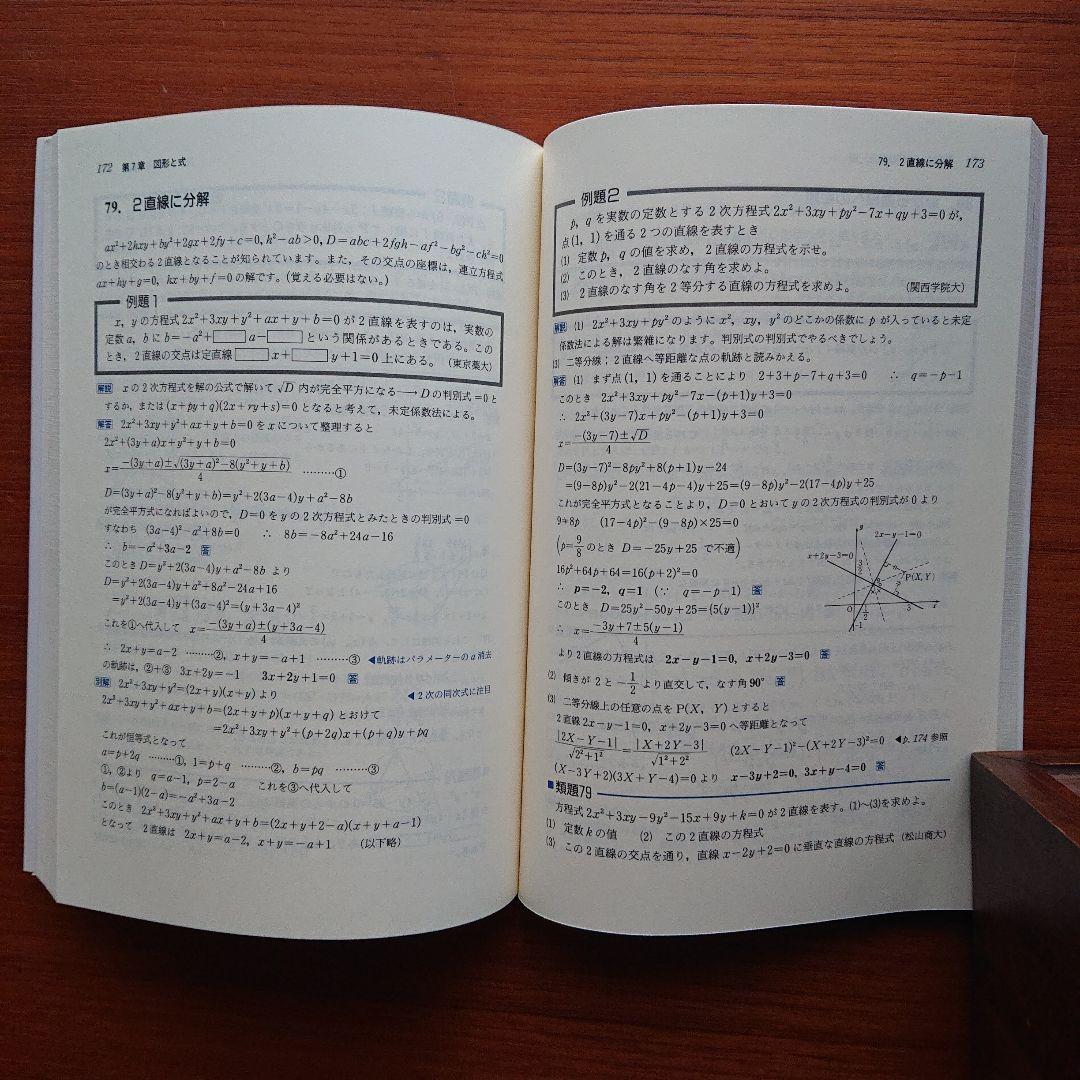 172 第7章 図形と式
79. 2直線に分解
ax²+2hxy+by²+2gx+2fy+c=0, h²-ab>0, D=abc+2fgh-af²-bg²-ch²=0
のとき相交わる2直線となることが知られています。また、その交点の座標は、連立方程式
ax+hy+g=0, hx+by+f=0の解です。(覚える必要はない。)
例題1
x, yの方程式2x²+3xy+y²+ax+y+b=0が2直線を表すのは、実数の
定数a, bにb=-a²+□a-□という関係があるときである。この
とき、2直線の交点は定直線□x+□y+1=0上にある。(東京薬大)
解説 xの2次方程式を解の公式で解いて√D 内が完全平方になる→Dの判別式=0と
するか、または(x+py+q)(2x+ry+s)=0となると考えて、未定係数法による。
解答 2x²+3xy+y²+ax+y+b=0をxについて整理すると
2x²+(3y+a)x+y²+y+b=0
x=(-(3y+a)±√((3y+a)²-8(y²+y+b)))/4 ………①
D=(3y+a)²-8(y²+y+b)=y²+2(3a-4)y+a²-8b
が完全平方式になればよいので、D=0をyの2次方程式とみたときの判別式=0
すなわち (3a-4)²-a²+8b=0 ∴ 8b=-8a²+24a-16
∴ b=-a²+3a-2 答
このときD=y²+2(3a-4)y+a²-8b より
D=y²+2(3a-4)y+a²+8a²-24a+16
=y²+2(3a-4)y+(3a-4)²=(y+3a-4)²
これを①へ代入して x=(-(3y+a)±(y+3a-4))/4
∴ 2x+y=a-2 ………②, x+y=-a+1 ………③ ◀軌跡はパラメーターのa消去
の軌跡は、②+③ 3x+2y=-1 3x+2y+1=0 答
別解 2x²+3xy+y²=(2x+y)(x+y)より ◀2次の同次式に注目
2x²+3xy+y²+ax+y+b=(2x+y+p)(x+y+q)とおけて
=2x²+3xy+y²+(p+2q)x+(p+q)y+pq
これが恒等式となって
a=p+2q ………①, 1=p+q ………②, b=pq ………③
①, ②より q=a-1, p=2-a これを③へ代入して
b=(a-1)(2-a)=-a²+3a-2
このとき 2x²+3xy+y²+ax+y+b=(2x+y+2-a)(x+y+a-1)
となって 2直線は 2x+y=a-2, x+y=-a+1 (以下略)
79. 2直線に分解 173
例題2
p, qを実数の定数とする2次方程式2x²+3xy+py²-7x+qy+3=0が、
点(1, 1)を通る2つの直線を表すとき
(1) 定数p, qの値を求め、2直線の方程式を示せ。
(2) このとき、2直線のなす角を求めよ。
(3) 2直線のなす角を2等分する直線の方程式を求めよ。 (関西学院大)
解説 (1) 2x²+3xy+py²のようにx², xy, y²のどこかの係数にpが入っていると未定
係数法による解は繁雑になります。判別式の判別式でやるべきでしょう。
(3) 二等分線;2直線へ等距離な点の軌跡と読みかえる。
解答 (1) まず点(1, 1)を通ることにより 2+3+p-7+q+3=0 ∴ q=-p-1
このとき 2x²+3xy+py²-7x-(p+1)y+3=0
∴ 2x²+(3y-7)x+py²-(p+1)y+3=0
x=(-(3y-7)±√D)/4
D=(3y-7)²-8py²+8(p+1)y-24
=(9-8p)y²-2(21-4p-4)y+25=(9-8p)y²-2(17-4p)y+25
これが完全平方式となることより、D=0とおいてyの2次方程式の判別式が0より
9≠8p (17-4p)²-(9-8p)×25=0
(p=9/8のとき D=-25y+25 で不適)
16p²+64p+64=16(p+2)²=0
∴ p=-2, q=1 (∵ q=-p-1) 答
このとき D=25y²-50y+25={5(y-1)}²
∴ x=(-3y+7±5(y-1))/4
より2直線の方程式は 2x-y-1=0, x+2y-3=0 答
y
2x-y-1=0
x+2y-3=0
P(X, Y)
O
3
x
-1
(2) 傾きが2と-1/2より直交して、なす角90° 答
(3) 二等分線上の任意の点をP(X, Y)とすると
2直線2x-y-1=0, x+2y-3=0へ等距離となって
|2X-Y-1|/√(2²+1²)=|X+2Y-3|/√(1²+2²) (2X-Y-1)²-(X+2Y-3)²=0 ◀p. 174参照
(X-3Y+2)(3X+Y-4)=0より x-3y+2=0, 3x+y-4=0 答
類題79
方程式2x²+3xy-9y²-15x+9y+k=0が2直線を表す。(1)~(3)を求めよ。
(1) 定数kの値 (2) この2直線の方程式
(3) この2直線の交点を通り、直線x-2y+2=0に垂直な直線の方程式 (松山商大)